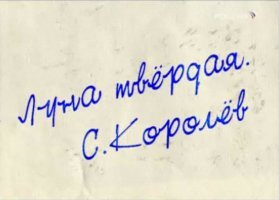 Луна твёрдая.
С. Королёв